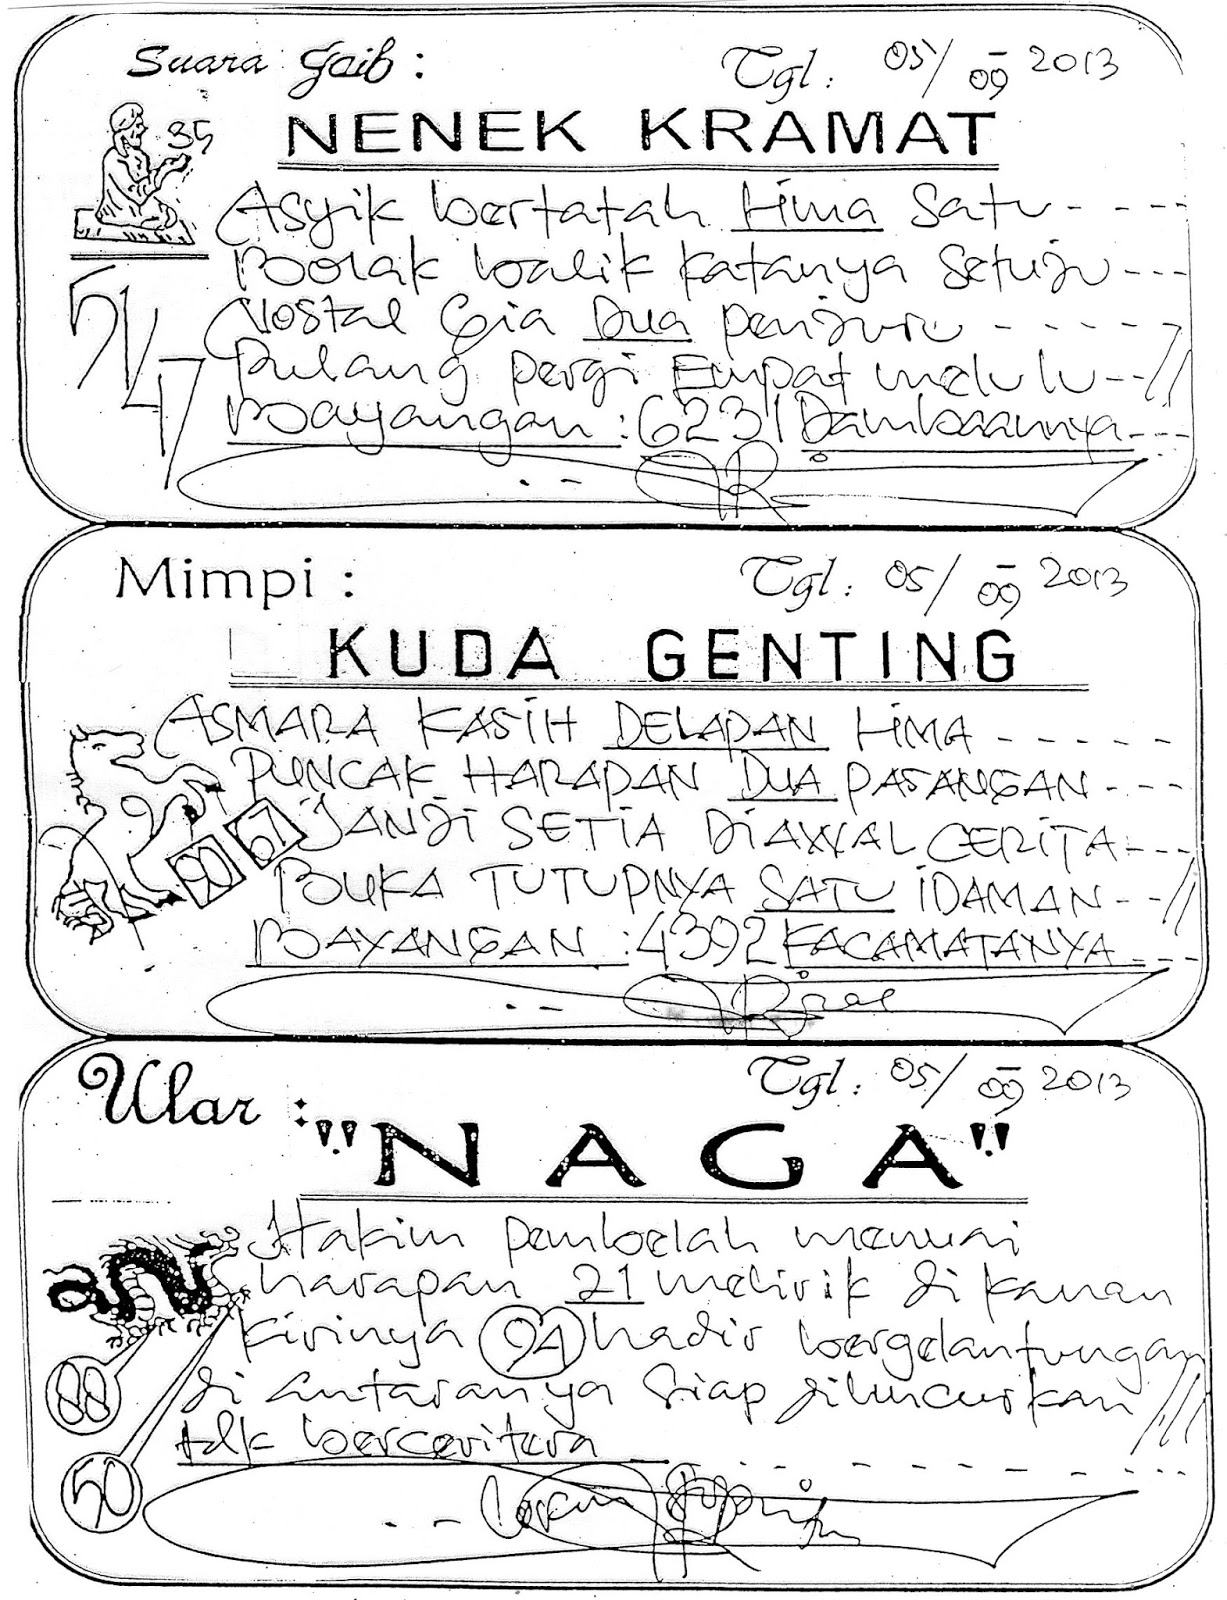 Suara Gaib :
Tgl : 05/09 2013
NENEK KRAMAT
35
Asyik bertatah Lima Satu - - - -
Bolak balik katanya setuju - - -
Nostal Gia Dua penjuru - - - - -
Pulang pergi Empat melulu - - //
Bayangan : 6231 Dambaannya - - -
5147
Mimpi :
Tgl : 05/09 2013
KUDA GENTING
ASMARA KASIH DELAPAN LIMA - - - - -
PUNCAK HARAPAN DUA PASANGAN - - - -
JANJI SETIA DIAWAL CERITA - - -
BUKA TUTUPNYA SATU IDAMAN - - //
BAYANGAN : 4392 KACAMATANYA - - -
67
Ular :
Tgl : 05/09 2013
"NAGA"
Hakim pembelah menuai
harapan 21 melirik di kanan
kirinya 94 hadir bergelantungan
di antaranya siap diluncurkan
tdk berceritera - - - - - - -
88
50